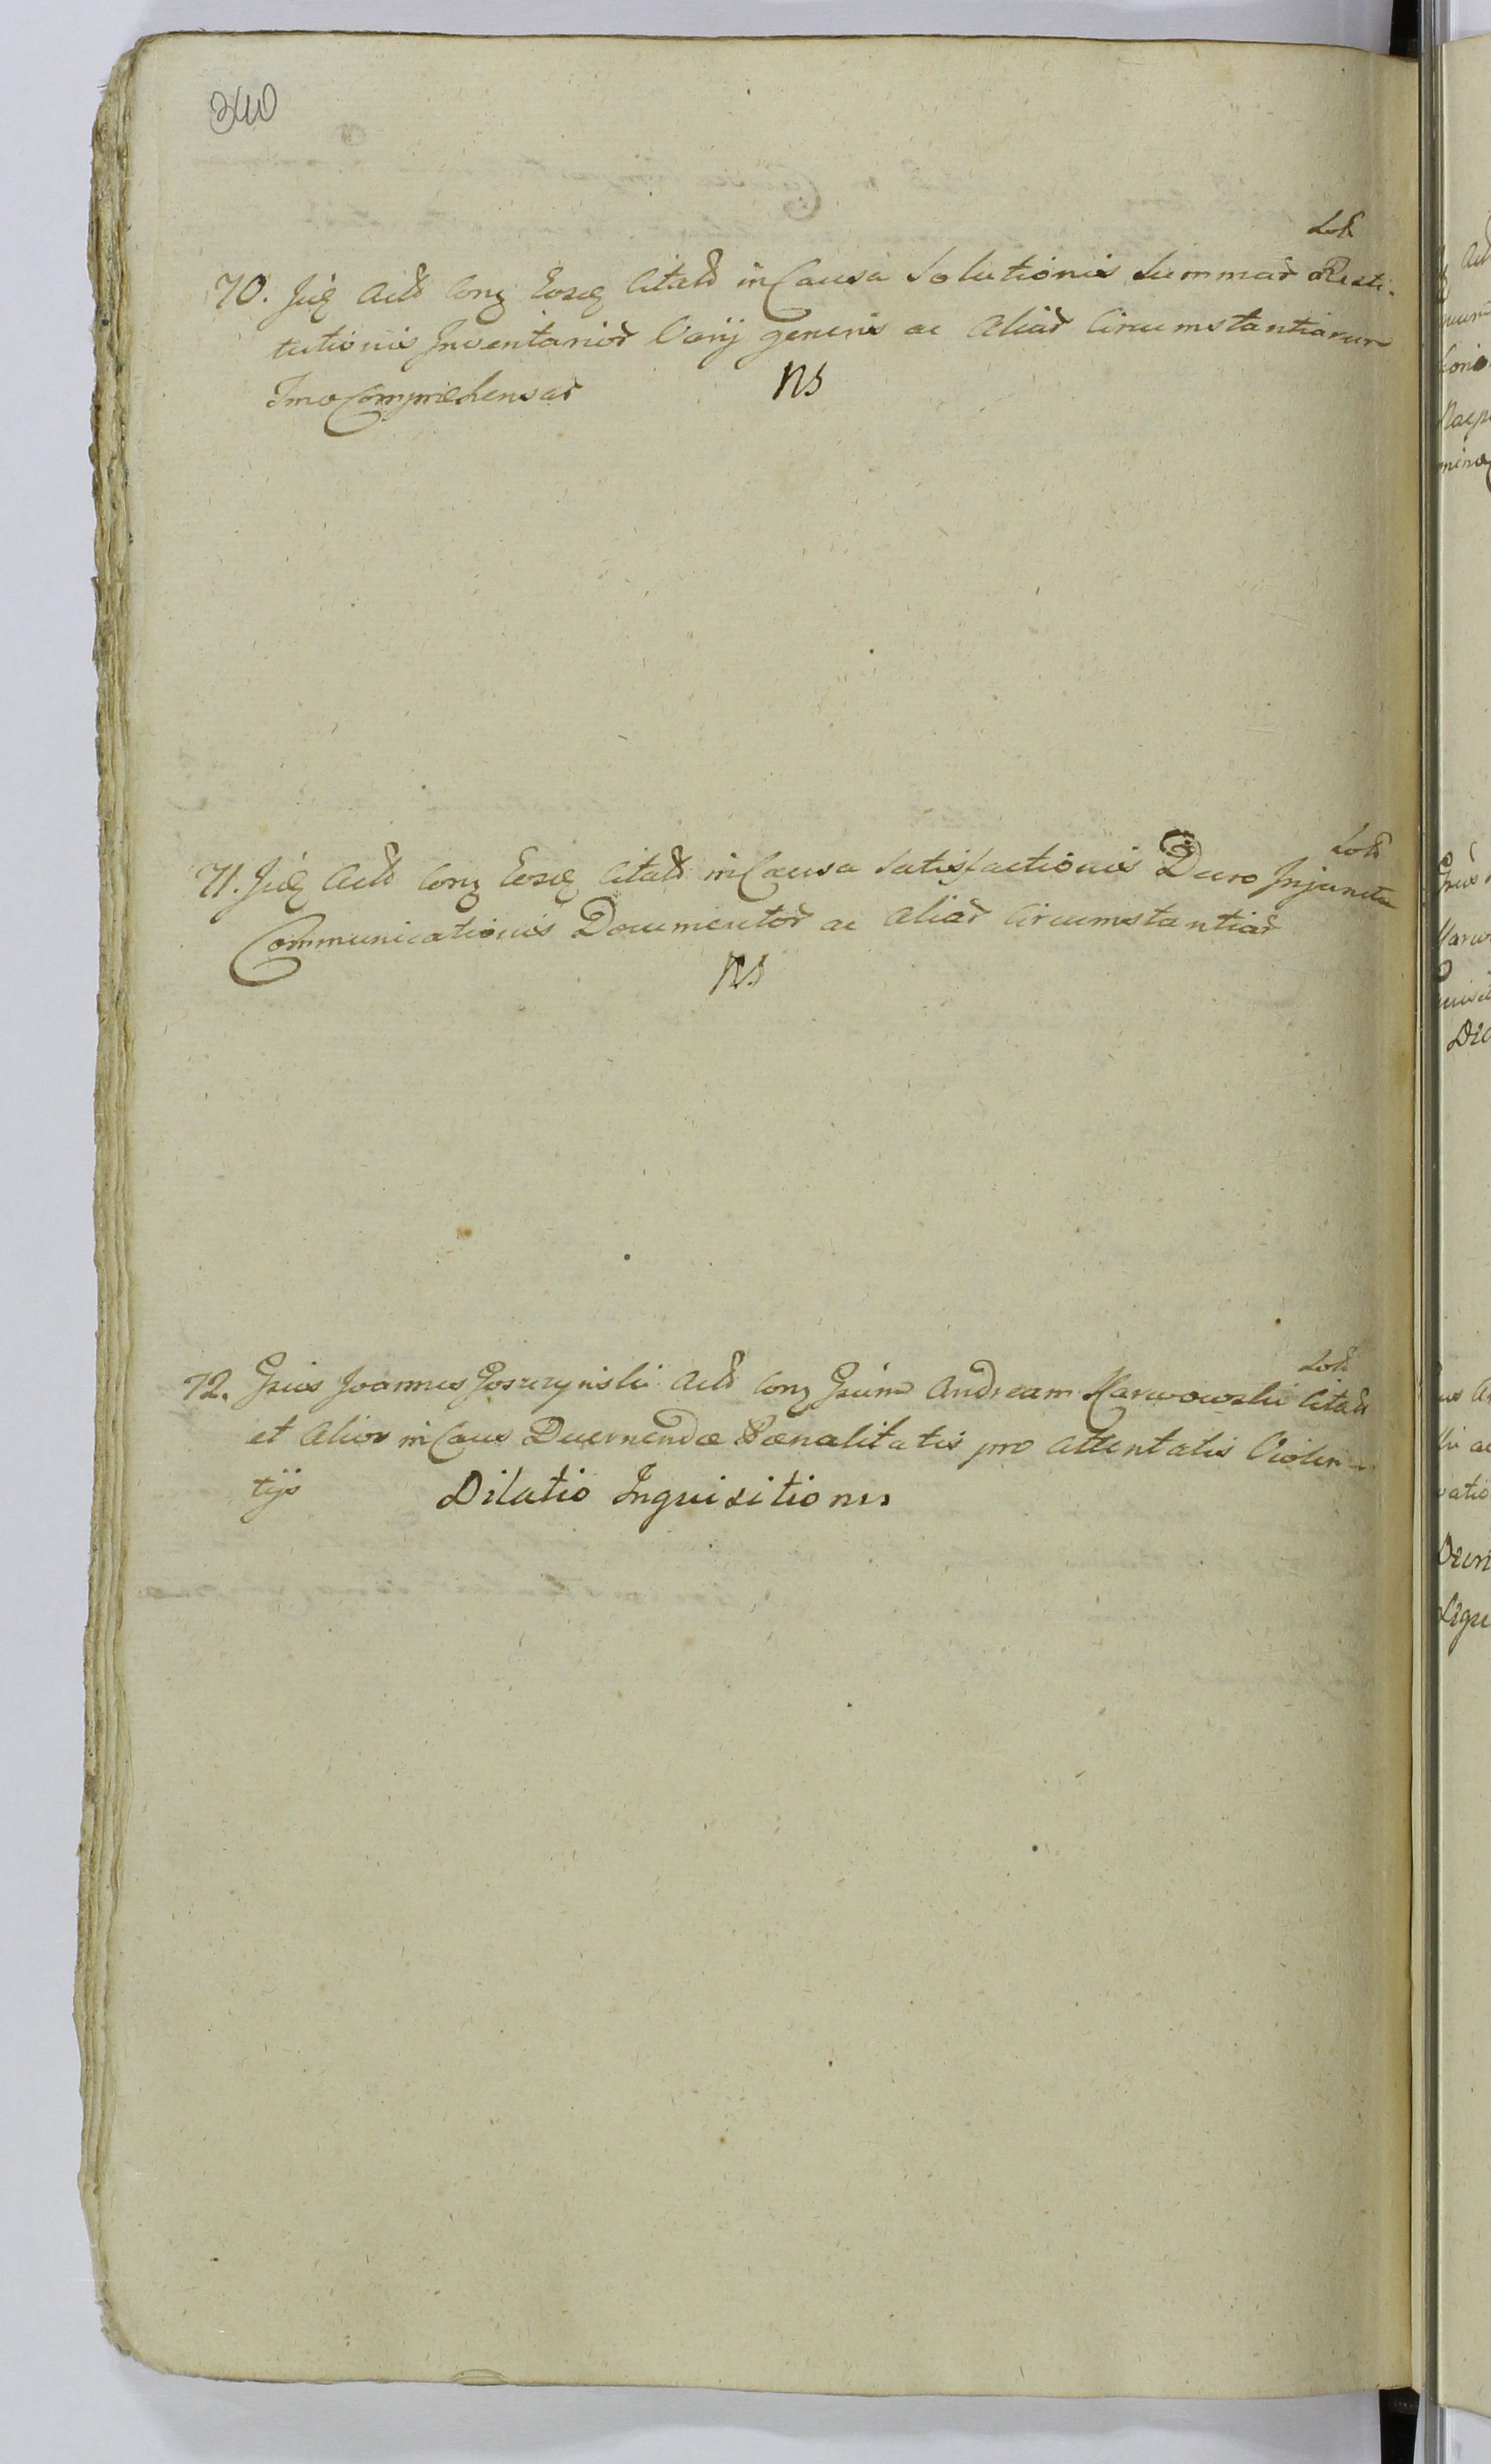 240
70. Jid Actt Conz Eosd Citatt in Causa Solutionis Summar Resti-
tutionis Inventarior Varij generis ac Aliar Circumstantiarum
Imo Comprehensar NS
71. Jid Actt Conz Eosd Citatt in Causa Satisfactionis Decro Injuncta
Communicationis Documentor ac Aliar Circumstantiar
NS
72. Gsus Joannes Goszczynski Actt Conz Gsum Andream Karwowski Citatt
et Alios in Caus Decernendæ Pœnalitatis pro Attentatis Violen-
tijs Dilatio Inquisitionis